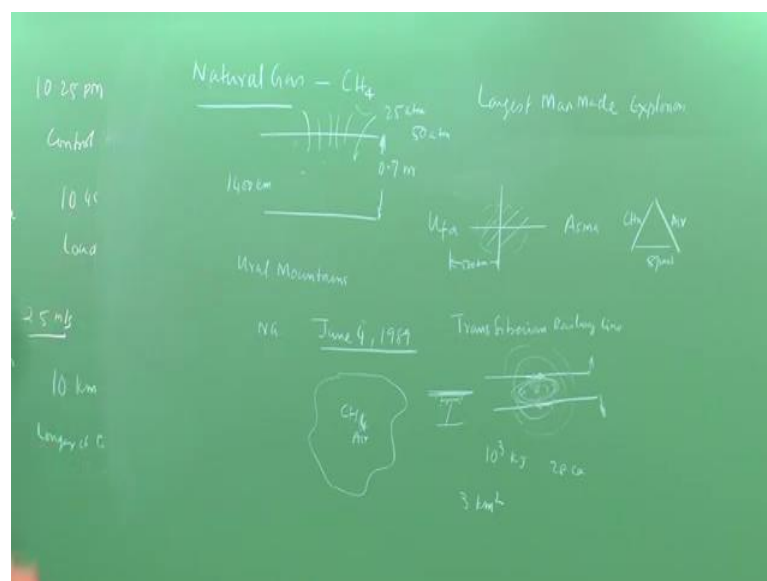 10 25 pm
Control
10 45
Loud
25 m/s
10 km
Natural Gas – CH4
25 atm
50 atm
0.7 m
1400 km
Ural Mountains
NG June 4, 1989
CH4
Air
Largest Man Made Explosion
Ufa
Asma
CH4 Air
Trans Siberian Railway line
10³ kJ
3 km²